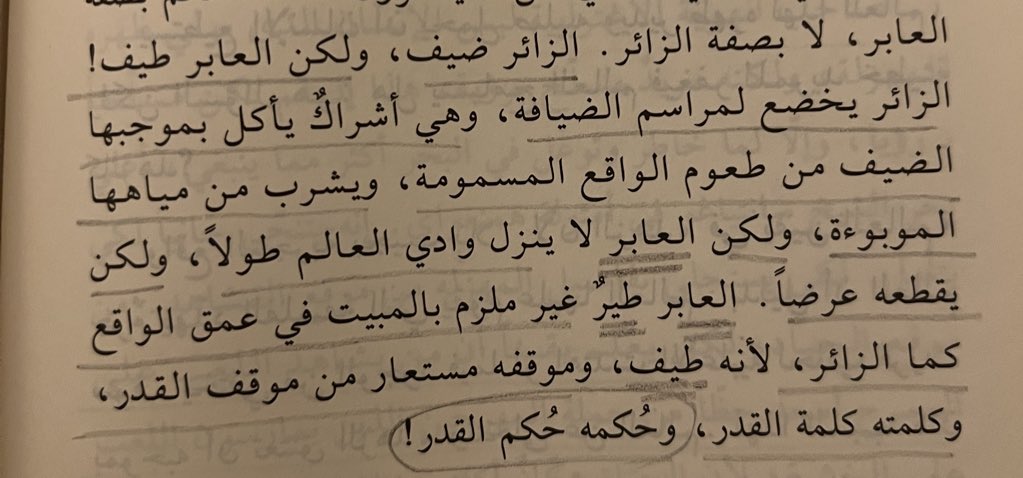 العابر، لا بصفة الزائر. الزائر ضيف، ولكن العابر طيف!
الزائر يخضع لمراسم الضيافة، وهي أشراكٌ يأكل بموجبها
الضيف من طعوم الواقع المسمومة، ويشرب من مياهها
الموبوءة، ولكن العابر لا ينزل وادي العالم طولاً، ولكن
يقطعه عرضاً. العابر طيرٌ غير ملزم بالمبيت في عمق الواقع
كما الزائر، لأنه طيف، وموقفه مستعار من موقف القدر،
وكلمته كلمة القدر، وحُكمه حُكم القدر!